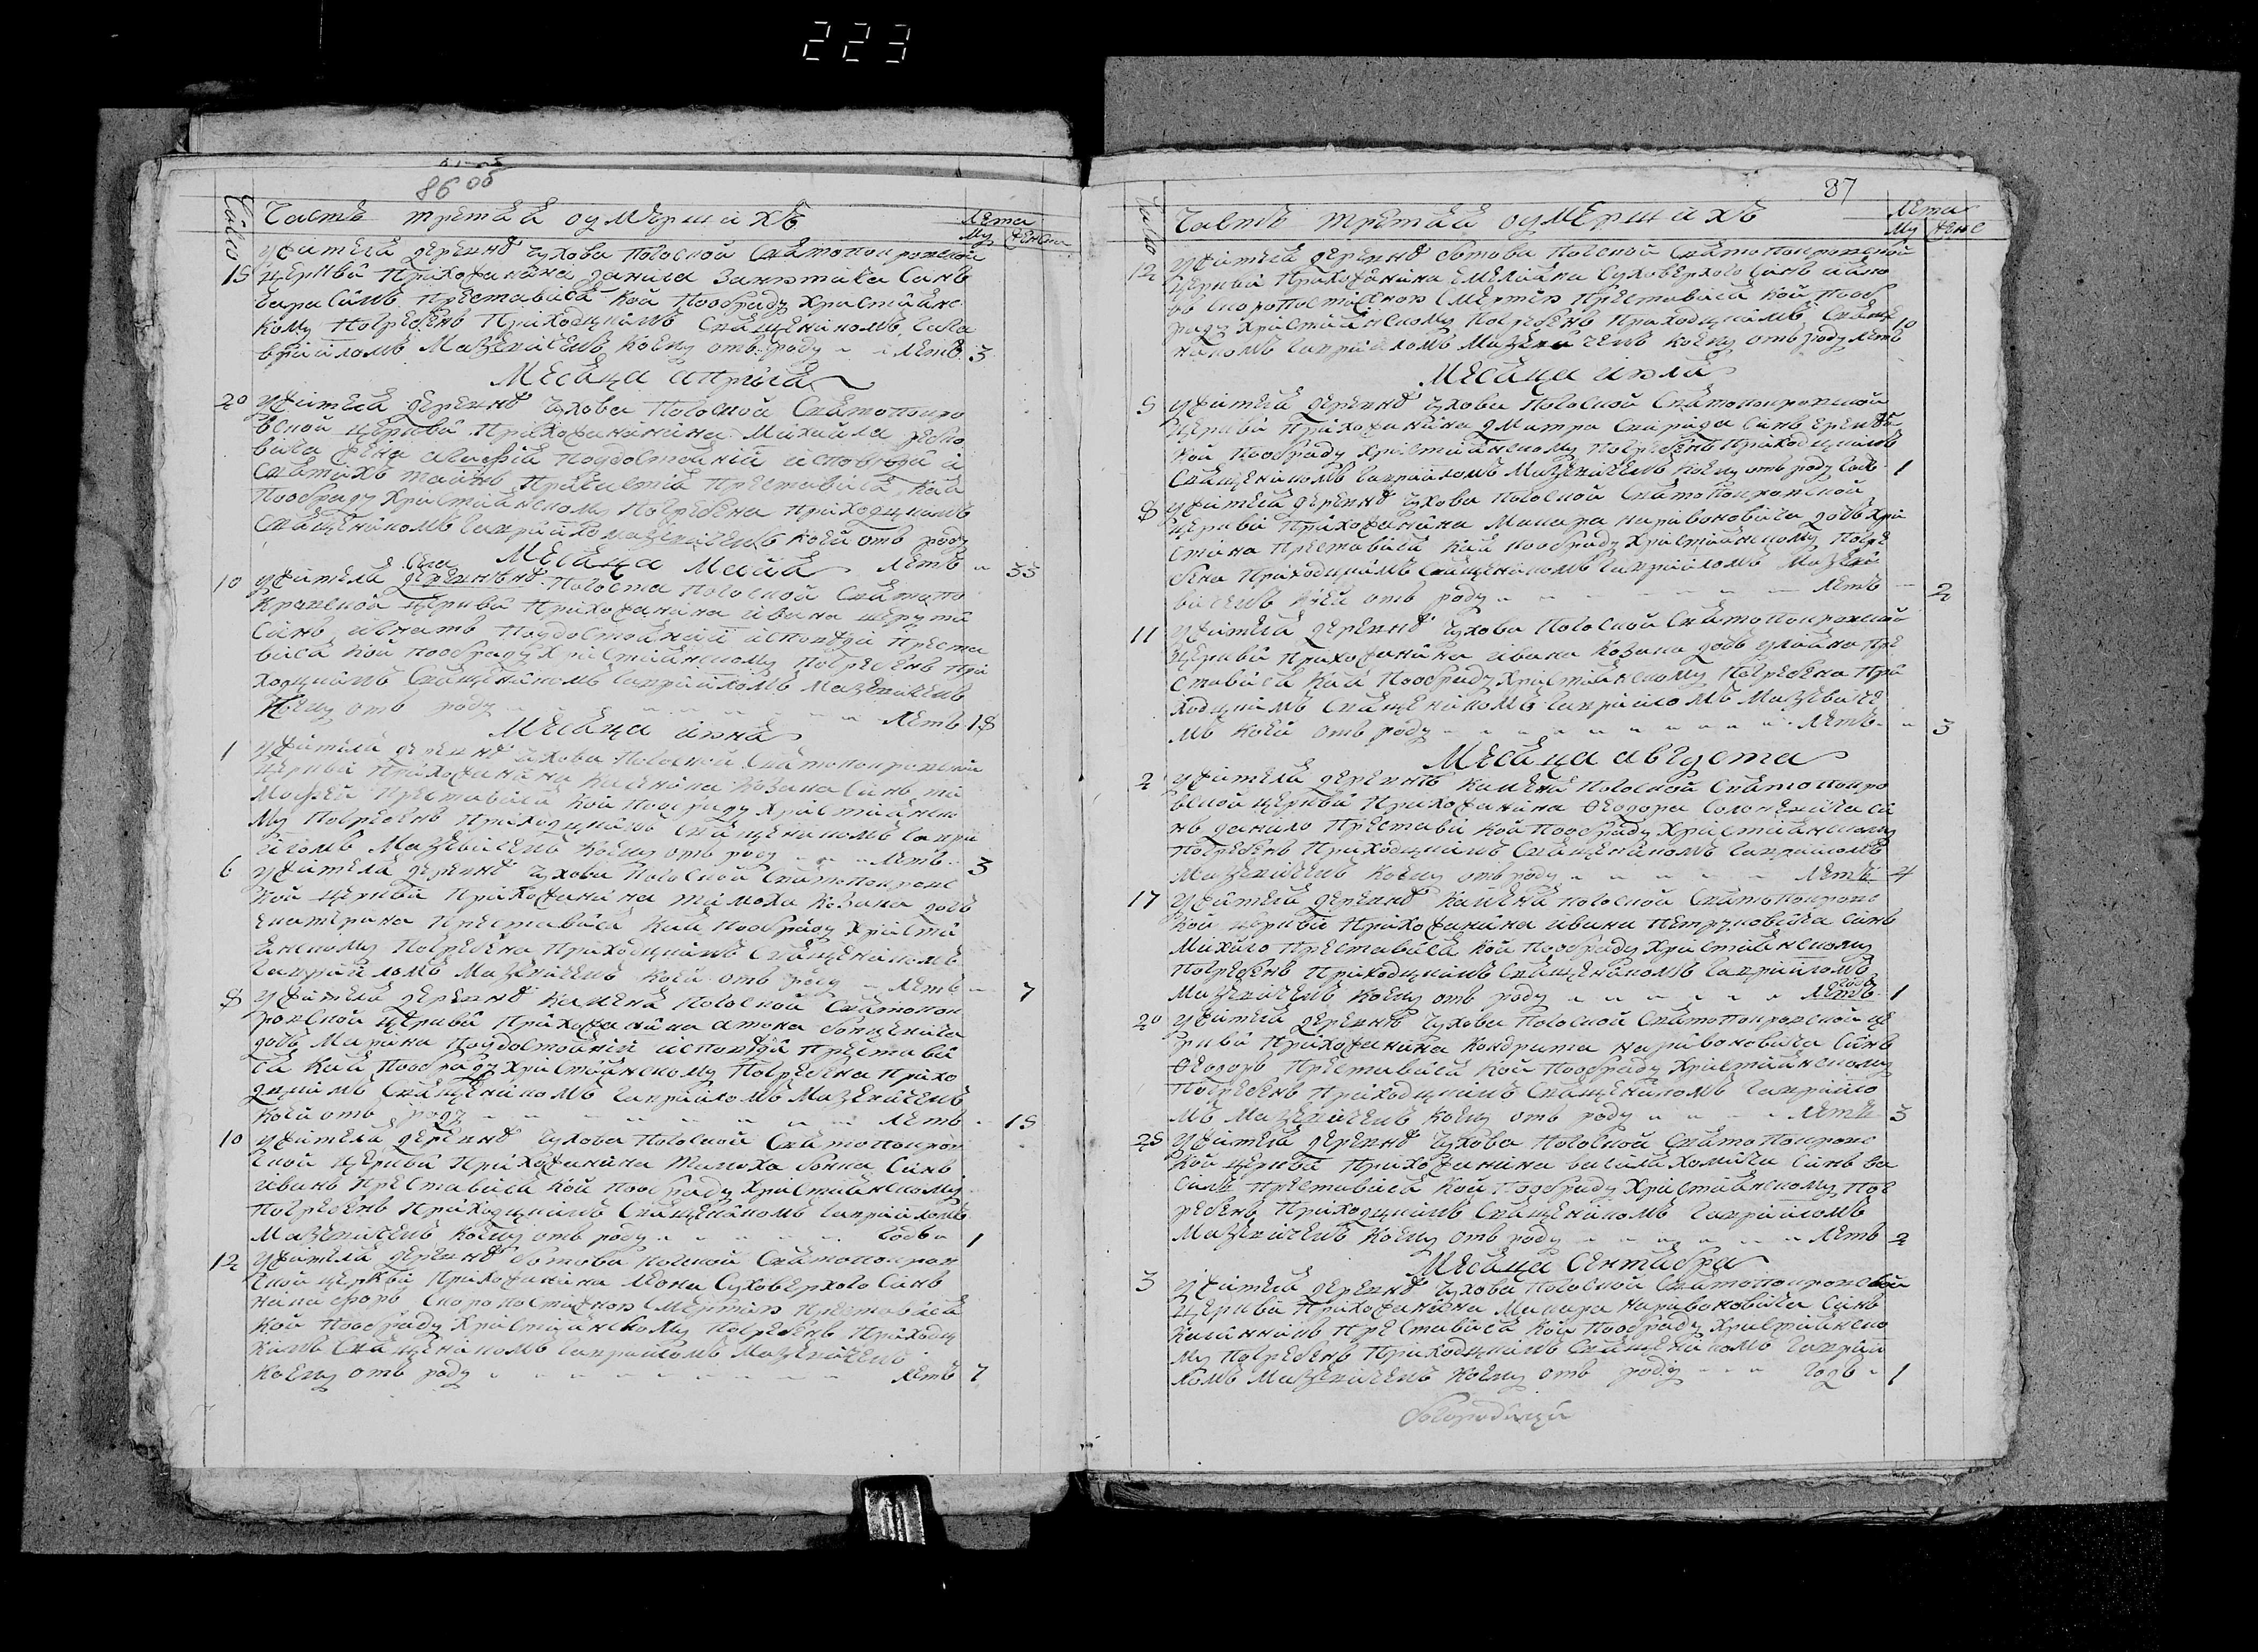 223
86 об
Число
Часть третая оумершихъ
Лета
Му Женска
Ужителя деревнѣ Чухова Погоской Святопокровской
15 церкви Прихожанина Данила сынъ
Герасимъ Преставися кой Пообряду Християнс
кому Погребенъ Приходцкимъ Священикомъ Гав
рииломъ Мацкевичемъ коему отъ роду летъ 3
Месяца Априля
20 Ужителя деревнѣ Чухова Погоской Святопокро
вской церкви Прихожанина Михаила
жена Агафия Поудостоянии исповеди и
Святихъ таинъ Причастия Преставися, кая
Пообряду Християнскому Погребена Приходцкимъ
Священикомъ Гаврииломъ Мацкевичемъ коей отъ роду
летъ 55
Месяца Майя
10 Ужителя села Погоста Погоской Святопо
кровской церкви Прихожанина Ивана
Синъ Игнатъ Поудостоянии исповеди Преста
вися кой пообряду Християнскому Погребенъ При
ходцкимъ Священикомъ Гаврииломъ Мацкевичемъ
коему отъ роду летъ 18
Месяца июня
1 Ужителя деревнѣ Чухова Погоской Святопокровской
церкви Прихожанина Козака Синъ Ма
Мофей Преставися кой пообряду Християнско
му Погребенъ Приходцкимъ Священикомъ Гаври
иломъ Мацкевичемъ коему отъ роду летъ 3
6 Ужителя деревнѣ Чухова Погоской Святопокровс
кой церкви Прихожанина Тимоха Козака дочъ
Екатерина Преставися Кая Пообряду Християн
янскому Погребена Приходцкимъ Священикомъ
Гаврииломъ Мацкевичемъ коей отъ роду летъ 7
8 Ужителя деревнѣ Каменя Погоской Святопок
ровской церкви Прихожанина Антона
дочъ Марина Поудостоянии исповеди Престави
ся Кая Пообряду Християнскому Погребена Прихо
дцкимъ Священикомъ Гаврииломъ Мацкевичемъ
коей отъ роду летъ 15
10 Ужителя деревнѣ Чухова Погоской Святопокров
ской церкви Прихожанина Тимоха Синъ
Иванъ Преставися кой Пообряду Християнскому
Погребенъ Приходцкимъ Священикомъ Гаврииломъ
Мацкевичемъ коему отъ роду годъ 1
12 Ужителя деревнѣ Ботова Погоской Святопокров
ской церкви Прихожанина Леона Суховерхого Синъ
Никифоръ Скоропостижною Смертию Преставися
кой Пообряду Християнскому Погребенъ Приходц
кимъ Священикомъ Гаврииломъ Мацкевичемъ
коему отъ роду летъ 7
87
Число
Часть третая оумершихъ
Лета
Му Женс
12 Ужителя деревнѣ Ботова Погоской Святопокровской
церкви Прихожанина Емелияна Суховерхого Синъ
Скоропостижною Смертию Преставися кой Пооб
ряду Християнскому Погребенъ Приходцкимъ Свяще
никомъ Гаврииломъ Мацкевичемъ коему отъ роду летъ 10
Месяца июля
5 Ужителя деревнѣ Чухова Погоской Святопокровской
церкви Прихожанина Дмитра Синъ Еремѣй
кой Пообряду Християнскому Погребенъ Приходцкимъ
Священикомъ Гаврииломъ Мацкевичемъ коему отъ роду годъ 1
8 Ужителя деревнѣ Чухова Погоской Святопокровской
церкви Прихожанина Макара Наривоновича дочъ Хри
стина Преставися кая пообряду Християнскому Погре
бена Приходцкимъ Священикомъ Гаврииломъ Мацке
вичемъ коей отъ роду летъ 2
11 Ужителя деревнѣ Чухова Погоской Святопокровской
церкви Прихожанина Ивана Козака дочъ Улияна Пре
ставися кая Пообряду Християнскому Погребена При
ходцкимъ Священикомъ Гаврииломъ Мацкевиче
мъ коей отъ роду летъ 3
Месяца августа
2 Ужителя деревнѣ Каменя Погоской Святопокро
вской церкви Прихожанина Феодора Соломевича Си
нъ Данило Престави кой Пообряду Християнскому
Погребенъ Приходцкимъ Священикомъ Гаврииломъ
Мацкевичемъ коему отъ роду летъ 4
17 Ужителя деревнѣ Каменя Погоской Святопокровс
кой церкви Прихожанина Ивана Петруковича Синъ
Михайло Преставися кой Пообряду Християнскому
Погребенъ Приходцкимъ Священикомъ Гаврииломъ
Мацкевичемъ коему отъ роду годъ 1
20 Ужителя деревнѣ Чухова Погоской Святопокровской це
ркви Прихожанина Кондрата Наривоновича Синъ
Феодоръ Преставися кой Пообряду Християнскому
Погребенъ Приходцкимъ Священикомъ Гавриило
мъ Мацкевичемъ коему отъ роду летъ 3
25 Ужителя деревнѣ Чухова Погоской Святопокровс
кой церкви Прихожанина Василя Хомича Синъ Ва
силь Преставися кой Пообряду Християнскому Пог
ребенъ Приходцкимъ Священикомъ Гаврииломъ
Мацкевичемъ коему отъ роду летъ 2
Месяца Сентября
3 Ужителя деревнѣ Чухова Погоской Святопокровской
церкви Прихожанина Макара Наривоновича Синъ
Преставися кой Пообряду Християнско
му Погребенъ Приходцкимъ Священикомъ Гаврии
ломъ Мацкевичемъ коему отъ роду годъ 1